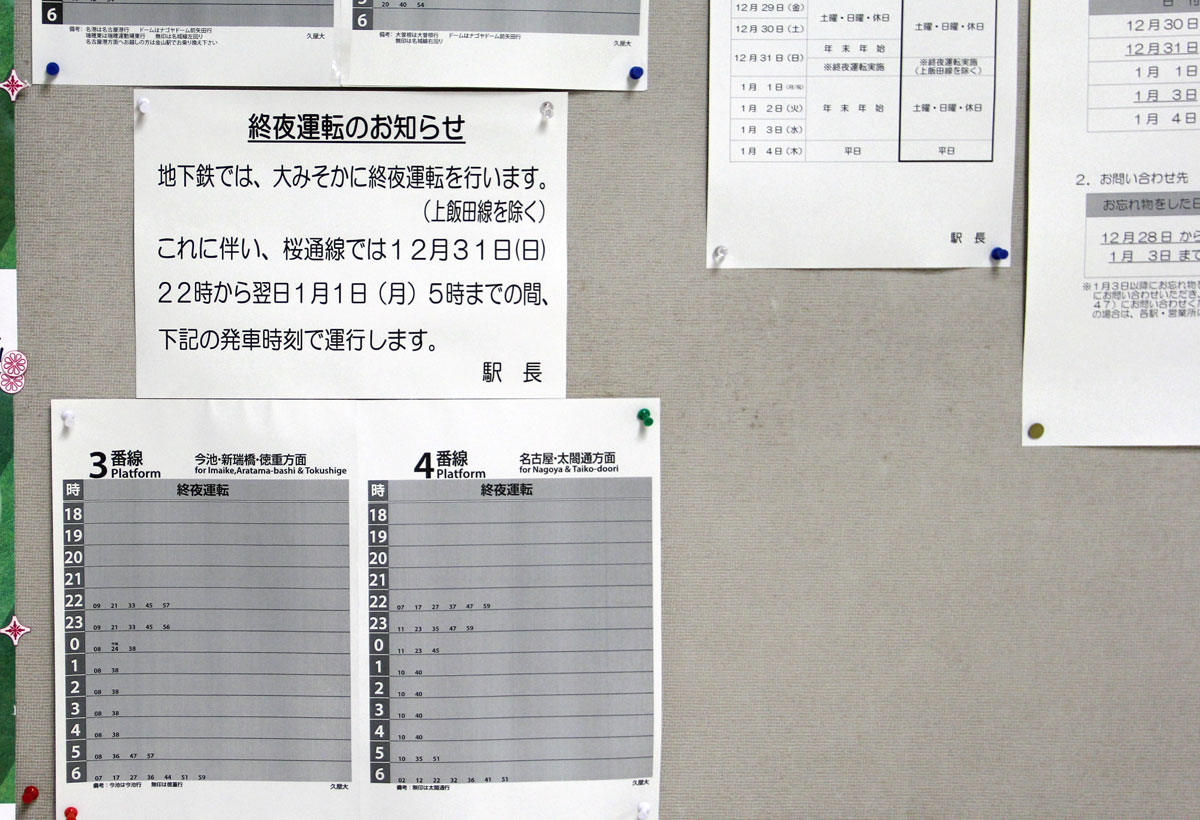 6
備考：名港は名古屋港行　ドームはナゴヤドーム前矢田行
瑞穂東は瑞穂運動場東行　無印は名城線左回り
名古屋港方面へお越しの方は金山駅でお乗り換え下さい
久屋大
5 20 40 54
6
備考：大曽根は大曽根行　ドームはナゴヤドーム前矢田行
無印は名城線右回り
久屋大
終夜運転のお知らせ
地下鉄では、大みそかに終夜運転を行います。
（上飯田線を除く）
これに伴い、桜通線では１２月３１日(日)
２２時から翌日１月１日（月）５時までの間、
下記の発車時刻で運行します。
駅　長
3 番線 Platform 今池・新瑞橋・徳重方面
for Imaike,Aratama-bashi & Tokushige
時 終夜運転
18
19
20
21
22 09 21 33 45 57
23 09 21 33 45 56
0 08 24 38
1 08 38
2 08 38
3 08 38
4 08 38
5 08 36 47 57
6 07 17 27 36 44 51 59
備考：今池は今池行　無印は徳重行
久屋大
4 番線 Platform 名古屋・太閤通方面
for Nagoya & Taiko-doori
時 終夜運転
18
19
20
21
22 07 17 27 37 47 59
23 11 23 35 47 59
0 11 23 45
1 10 40
2 10 40
3 10 40
4 10 40
5 10 35 51
6 02 12 22 32 36 41 51
備考：無印は太閤通行
久屋大
12月29日(金)
土曜・日曜・休日
土曜・日曜・休日
12月30日(土)
12月31日(日) 年　末　年　始
※終夜運転実施
※終夜運転実施
(上飯田線を除く)
1月　1日(月/祝)
1月　2日(火) 年　末　年　始 土曜・日曜・休日
1月　3日(水)
1月　4日(木) 平日 平日
駅　長
日　付
12月30日
12月31日
1月　1日
1月　3日
1月　4日
２．お問い合わせ先
お忘れ物をした日
12月28日から
1月　3日まで
※1月3日以降にお忘れ物を
にお問い合わせいただき
４７）にお問い合わせく
の場合は、各駅・営業所